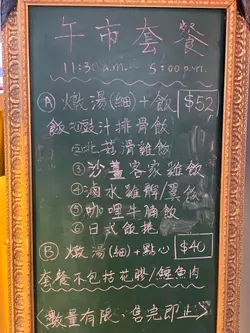 午市套餐
11:30 a.m. - 5:00 p.m.
Ⓐ 燉湯(細)+飯 $52
飯:①豉汁排骨飯
②北菇滑雞飯
③沙薑客家雞飯
④滷水雞髀/翼飯
⑤咖哩牛腩飯
⑥日式飯捲
Ⓑ 燉湯(細)+點心 $40
套餐不包括花膠/鱷魚肉
(數量有限、售完即止)